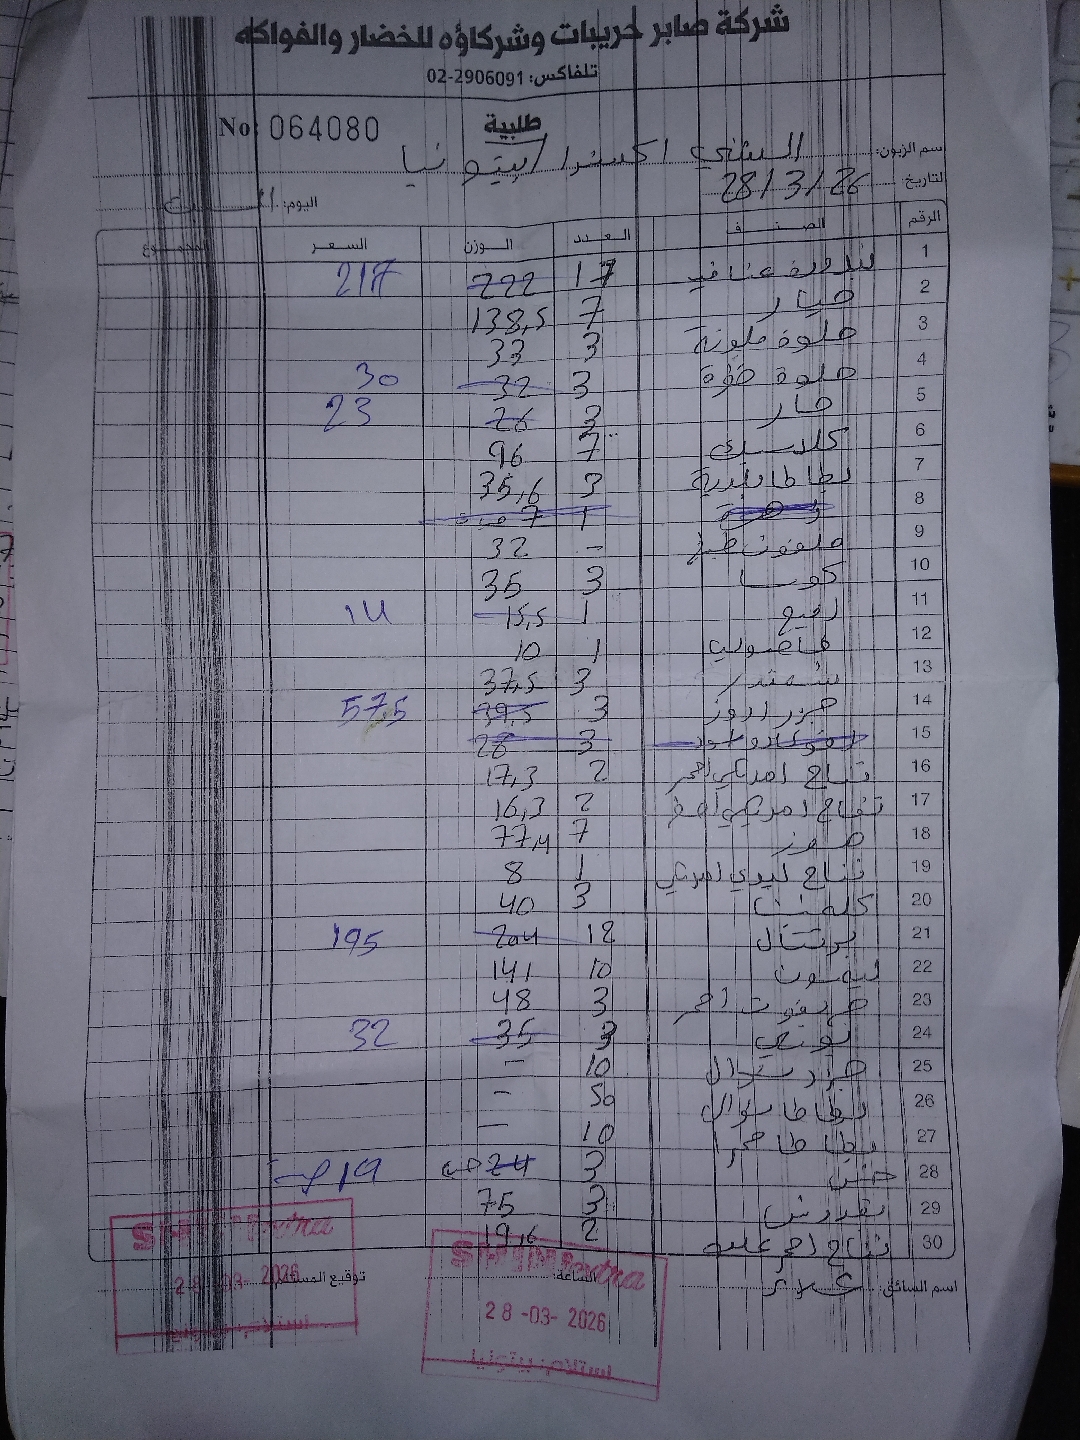 شركة صابر حريبات وشركاؤه للخضار والفواكه
تلفاكس: 02-2906091
No: 064080
طلبية
اسم الزبون: الشني اكسترا / بيتونيا
التاريخ: 28/3/26
اليوم: السبت
الرقم الصنف العدد الوزن السعر المجموع
1 بندورة عناقيد 17 222 217
2 خيار 7 138,5
3 حلوة ملونة 3 33
4 حلوة خضرة 3 32 30
5 حار 3 26 23
6 كلاسيك 7 96
7 بطاطا بلدية 3 35,6
8 زهرة 1 7
9 ملفوف طبخ - 32
10 كوسا 3 35
11 رفيع 1 15,5 14
12 فاصوليا 1 10
13 شمندر 3 37,5
14 جزر اروز 3 39,5 57,5
15 افوكادو اسود 3 28
16 تفاح امريكي احمر 2 17,3
17 تفاح امريكي اصفر 2 16,3
18 موز 7 77,4
19 تفاح ليدي امريكي 1 8
20 كلمنتينا 3 40
21 برتقال 12 204 195
22 ليمون 10 141
23 جريفوت احمر 3 48
24 بوملي 3 35 32
25 جزر شوال 10 -
26 بطاطا شوال 50 -
27 بطاطا حمرا 10 -
28 خس 3 24 حبة 19
29 بقدونس 3 75
30 تفاح احمر علبة 2 19,6
اسم السائق: علاء
الساعة:
توقيع المستلم
SHINI extra
28-03-2026
استلام بيتونيا
SHINI extra
28-03-2026
استلام بيتونيا